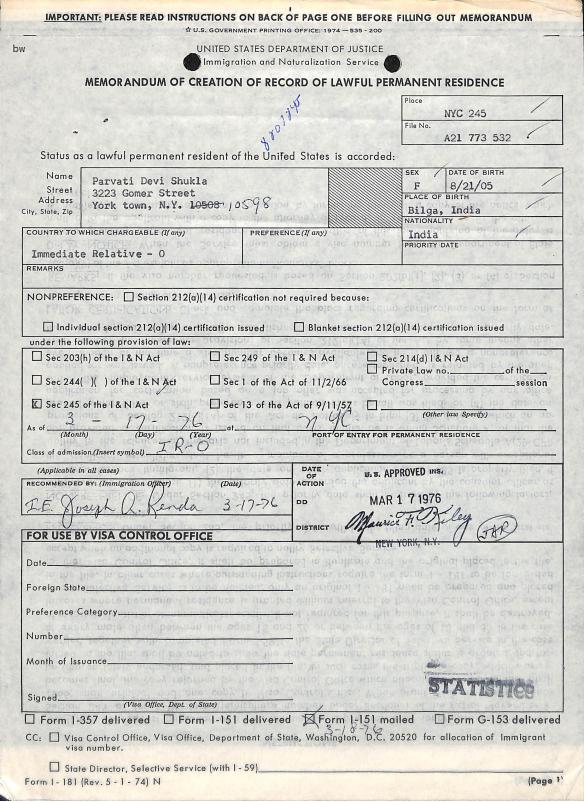 IMPORTANT: PLEASE READ INSTRUCTIONS ON BACK OF PAGE ONE BEFORE FILLING OUT MEMORANDUM
☆ U.S. GOVERNMENT PRINTING OFFICE: 1974 — 535 - 200
bw
UNITED STATES DEPARTMENT OF JUSTICE
Immigration and Naturalization Service
MEMORANDUM OF CREATION OF RECORD OF LAWFUL PERMANENT RESIDENCE
Place
NYC 245
File No.
A21 773 532
Status as a lawful permanent resident of the United States is accorded:
Name Parvati Devi Shukla
Street 3223 Gomer Street
Address
City, State, Zip York town, N.Y. 10508 10598
SEX F
DATE OF BIRTH 8/21/05
PLACE OF BIRTH
Bilga, India
NATIONALITY
India
PRIORITY DATE
COUNTRY TO WHICH CHARGEABLE (If any)
Immediate Relative - O
PREFERENCE (If any)
REMARKS
NONPREFERENCE: Section 212(a)(14) certification not required because:
Individual section 212(a)(14) certification issued Blanket section 212(a)(14) certification issued
under the following provision of law:
Sec 203(h) of the I & N Act Sec 249 of the I & N Act Sec 214(d) I & N Act
Private Law no. of the
Sec 244( )( ) of the I & N Act Sec 1 of Act of 11/2/66 Congress session
X Sec 245 of the I & N Act Sec 13 of the Act of 9/11/57
(Other law Specify)
As of 3 - 17 - 76 at NYC
(Month) (Day) (Year) PORT OF ENTRY FOR PERMANENT RESIDENCE
Class of admission (Insert symbol) IR-O
(Applicable in all cases)
RECOMMENDED BY: (Immigration Officer) (Date)
I.E. Joseph A. Renda 3-17-76
DATE OF ACTION
DD
DISTRICT
U.S. APPROVED INS.
MAR 17 1976
Maurice F. Kiley
NEW YORK, N.Y.
FOR USE BY VISA CONTROL OFFICE
Date
Foreign State
Preference Category
Number
Month of Issuance
Signed
(Visa Office, Dept. of State)
STATISTICS
Form I-357 delivered Form I-151 delivered X Form I-151 mailed Form G-153 delivered
3-18-76
CC: Visa Control Office, Visa Office, Department of State, Washington, D.C. 20520 for allocation of Immigrant
visa number.
State Director, Selective Service (with I - 59)
Form I - 181 (Rev. 5 - 1 - 74) N
(Page 1)